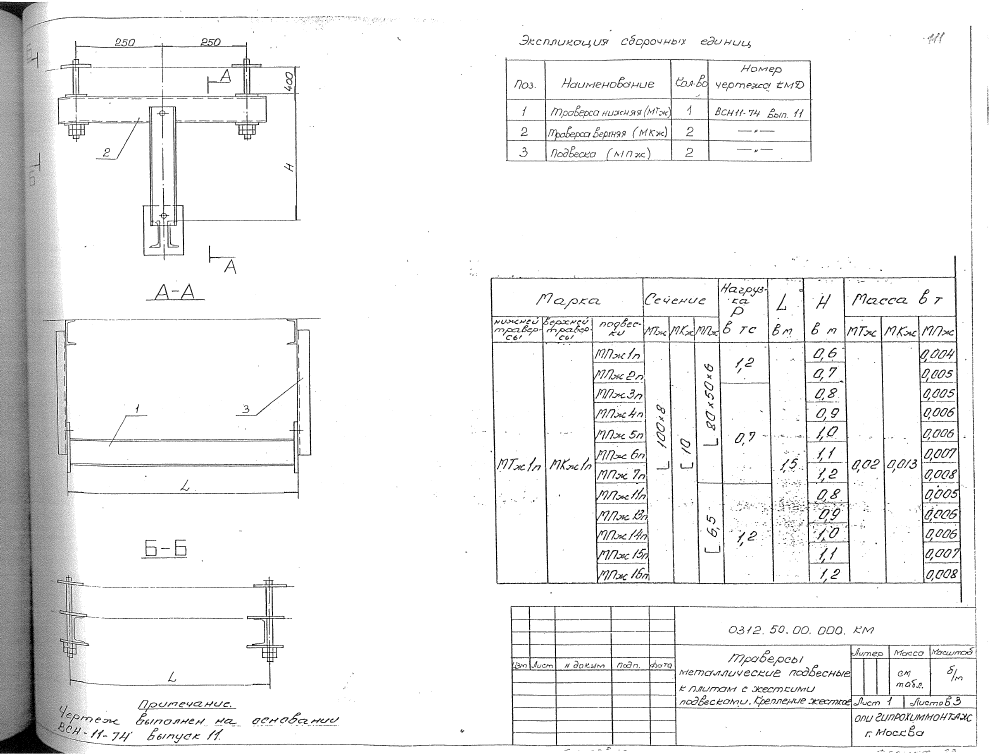 250 250
А
400
2
Н
А
А-А
1 3
L
Б-Б
L
Примечание.
Чертеж выполнен на основании
ВСН-11-74 выпуск 11.
111
Экспликация сборочных единиц
Поз. Наименование Кол.во Номер чертежа КМД
1 Траверса нижняя (МТж) 1 ВСН11-74 Вып. 11
2 Траверса верхняя (МКж) 2 —〃—
3 Подвеска (МПж) 2 —〃—
Марка Сечение Нагрузка Р L Н Масса в т
нижней траверсы верхней траверсы подвески МТж МКж МПж в тс в м в м МТж МКж МПж
МТж1п МКж1п L 100×8 [ 10 1,5 0,02 0,013
МПж1п L 80×50×6 1,2 0,6 0,004
МПж2п 0,7 0,005
МПж3п 0,7 0,8 0,005
МПж4п 0,9 0,006
МПж5п 1,0 0,006
МПж6п 1,1 0,007
МПж7п 1,2 0,008
МПж11п [ 6,5 1,2 0,8 0,005
МПж13п 0,9 0,006
МПж14п 1,0 0,006
МПж15п 1,1 0,007
МПж16п 1,2 0,008
0312.50.00.000.КМ
Изм Лист № докум подп. дата
Траверсы
металлические подвесные
к плитам с жесткими
подвесками. Крепление жесткое
Литер Масса Масштаб
см табл. б/м
Лист 1 Листов 3
ОПИ ГИПРОХИММОНТАЖ
г. Москва